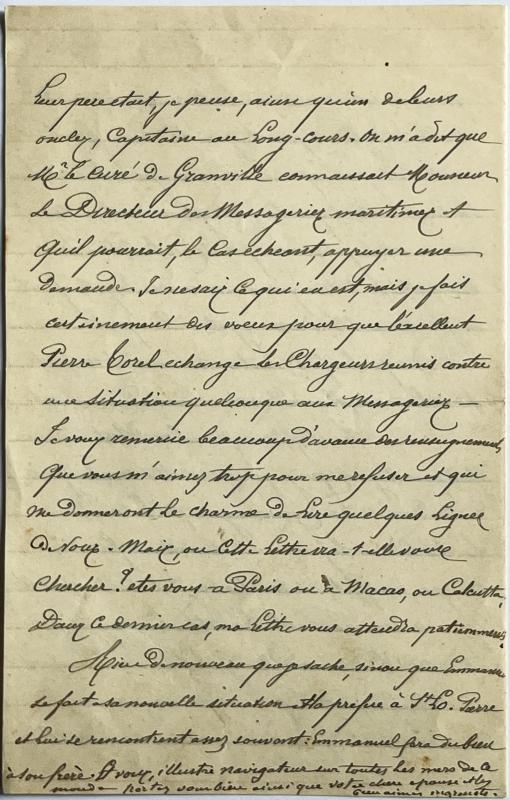 Leur pere etait, je pense, ainsi qu'un de leurs
oncles, Capitaine au Long-cours. On m'a dit que
Mr le Curé de Granville connaissait Monsieur
le Directeur des Messageries maritimes et
qu'il pourrait, le cas echeant, appuyer une
demande. Je ne sais ce qui en est, mais je fais
certainement des voeux pour que l'excellent
Pierre echange les Chargeurs reunis contre
une situation quelconque aux Messageries —
Je vous remercie beaucoup d'avance des renseignements
que vous m'aimez trop pour me refuser et qui
me donneront le charme de Lire quelques Lignes
de Vous. Mais, ou cette Lettre ira-t-elle vous
chercher? etes vous a Paris ou à Macao, ou Calcutta,
Dans ce dernier cas, ma Lettre vous attendra patiemment.
Rien de nouveau que je sache, sinon que Emmanuel
se fait a sa nouvelle situation et la prefere à St Lo. Pierre
et Lui se rencontrent assez souvent: Emmanuel fera du bien
à son frère. Et vous, illustre navigateur sur toutes les mers de ce
monde portez vous bien ainsi que votre chere epouse et les